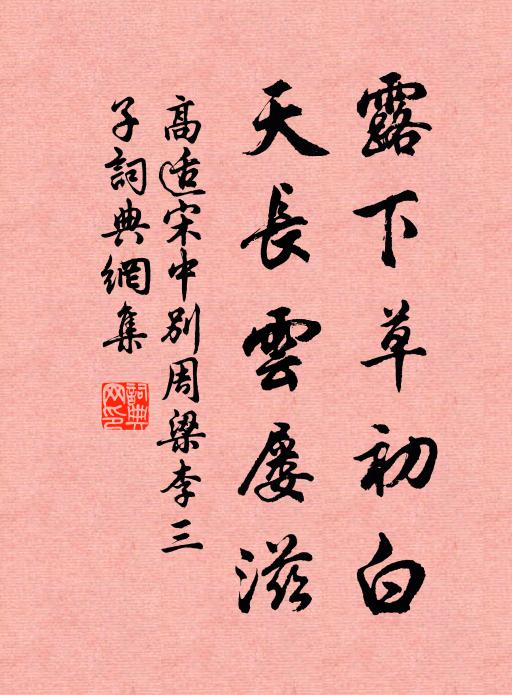 露下草初白
天長雲屡滋
高适宋中別周梁李三
子詞典網集
詞典
网印